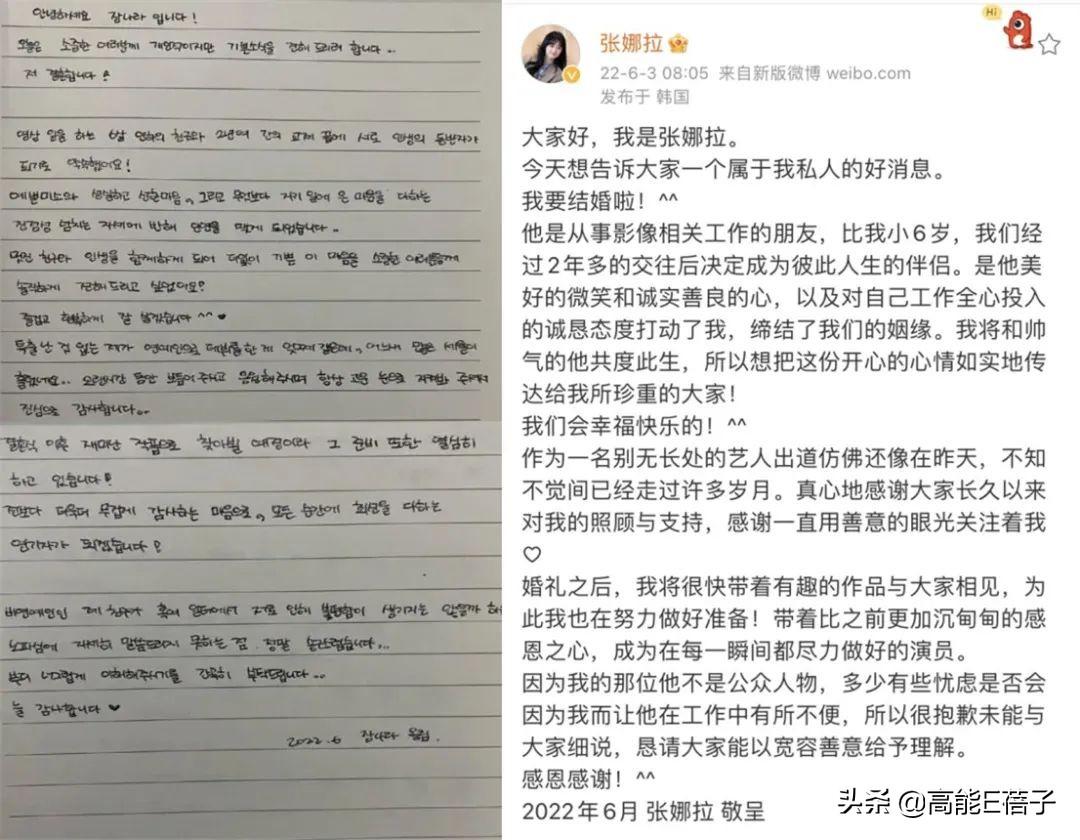 안녕하세요 장나라 입니다!
오늘은 소중한 여러분께 개인적이지만 기쁜소식을 전해 드리려 합니다..
저 결혼합니다!
영상 일을 하는 6살 연하의 친구와 2년여 간의 교제 끝에 서로 인생의 동반자가
되기로 약속했어요!
예쁜미소와 성실하고 선한마음, 그리고 무엇보다 자기 일에 온 마음을 다하는
진정성 넘치는 자세에 반해 인연을 맺게 되었습니다..
멋진 친구와 인생을 함께하게 되어 더없이 기쁜 이 마음을 소중한 여러분들께
솔직하게 전해드리고 싶었어요!
즐겁고 행복하게 잘 살겠습니다 ^^ ♥
특출난 점 없는 제가 연예인으로 데뷔를 한 게 엊그제 같은데, 어느새 많은 세월이
흘렀네요.. 오랜시간 동안 보듬어주시고 응원해주시며 항상 고운 눈으로 지켜봐 주셔서
진심으로 감사합니다..
결혼식 이후 재미난 작품으로 찾아뵐 예정이라 그 준비 또한 열심히
하고 있습니다!
전보다 더욱더 무겁게 감사하는 마음으로, 모든 순간에 최선을 다하는
연기자가 되겠습니다!
비연예인인 제 친구가 혹여 일터에서 저로 인해 불편함이 생기지는 않을까 하
노파심에 자세히 말씀드리지 못하는 점, 정말 송구스럽습니다...
부디 너그럽게 이해해주시기를 간곡히 부탁드립니다..
늘 감사합니다 ♥
2022.6 장나라 올림.
张娜拉
22-6-3 08:05 来自新版微博 weibo.com
发布于 韩国
Hi
大家好，我是张娜拉。
今天想告诉大家一个属于我私人的好消息。
我要结婚啦！^^
他是从事影像相关工作的朋友，比我小6岁，我们经
过2年多的交往后决定成为彼此人生的伴侣。是他美
好的微笑和诚实善良的心，以及对自己工作全心投入
的诚恳态度打动了我，缔结了我们的姻缘。我将和帅
气的他共度此生，所以想把这份开心的心情如实地传
达给我所珍重的大家！
我们会幸福快乐的！^^
作为一名别无长处的艺人出道仿佛还像在昨天，不知
不觉间已经走过许多岁月。真心地感谢大家长久以来
对我的照顾与支持，感谢一直用善意的眼光关注着我
♡
婚礼之后，我将很快带着有趣的作品与大家相见，为
此我也在努力做好准备！带着比之前更加沉甸甸的感
恩之心，成为在每一瞬间都尽力做好的演员。
因为我的那位他不是公众人物，多少有些忧虑是否会
因为我而让他在工作中有所不便，所以很抱歉未能与
大家细说，恳请大家能以宽容善意给予理解。
感恩感谢！^^
2022年6月 张娜拉 敬呈
头条 @高能E蓓子